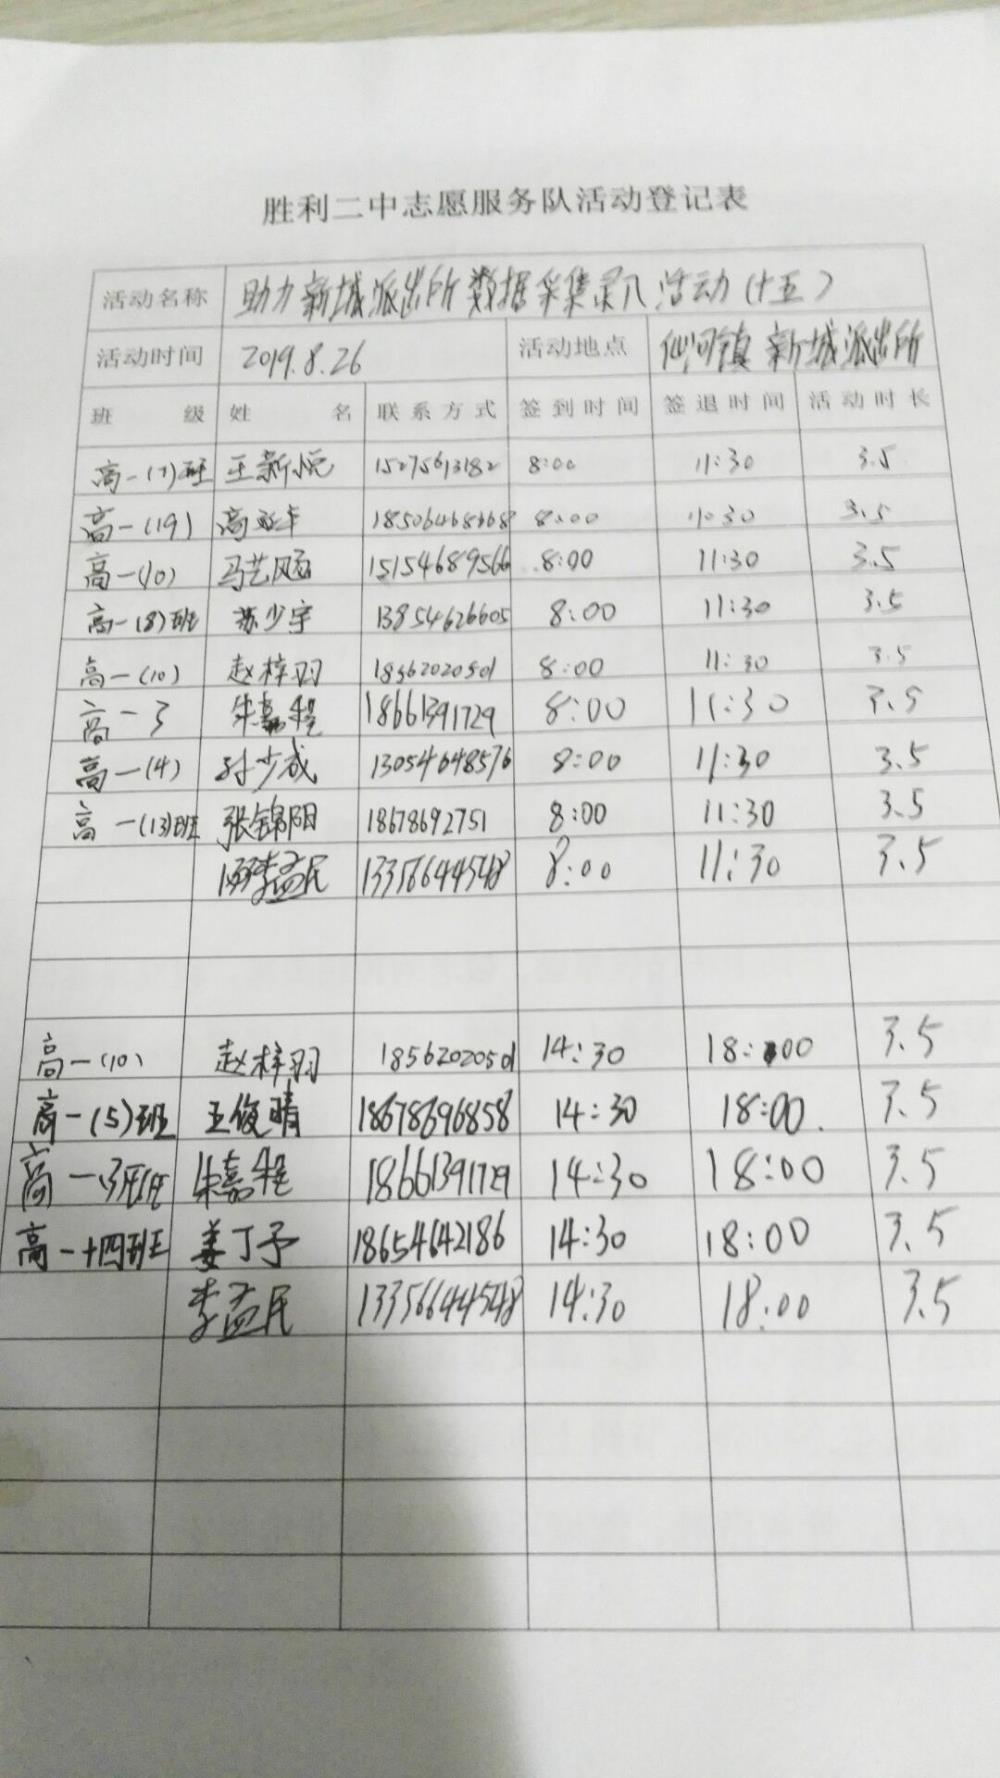 胜利二中志愿服务队活动登记表
活动名称 助力新城派出所数据采集录入活动(十五)
活动时间 2019.8.26 活动地点 仙河镇新城派出所
班级 姓名 联系方式 签到时间 签退时间 活动时长
高一(7)班 王新悦 15275613182 8:00 11:30 3.5
高一(19) 8:00 11:30 3.5
高一(10) 15154689566 8:00 11:30 3.5
高一(8)班 苏少宇 13854626605 8:00 11:30 3.5
高一(10) 赵梓羽 18562020501 8:00 11:30 3.5
高一3 朱嘉程 18661391729 8:00 11:30 3.5
高一(4) 孙少成 13054648576 8:00 11:30 3.5
高一(13)班 张锦阳 18678692751 8:00 11:30 3.5
李益民 13356644548 8:00 11:30 3.5
高一(10) 赵梓羽 18562020501 14:30 18:00 3.5
高一(5)班 王俊晴 18678696858 14:30 18:00 3.5
高一3班 朱嘉程 18661391729 14:30 18:00 3.5
高一十四班 姜丁予 18654642186 14:30 18:00 3.5
李益民 13356644548 14:30 18:00 3.5